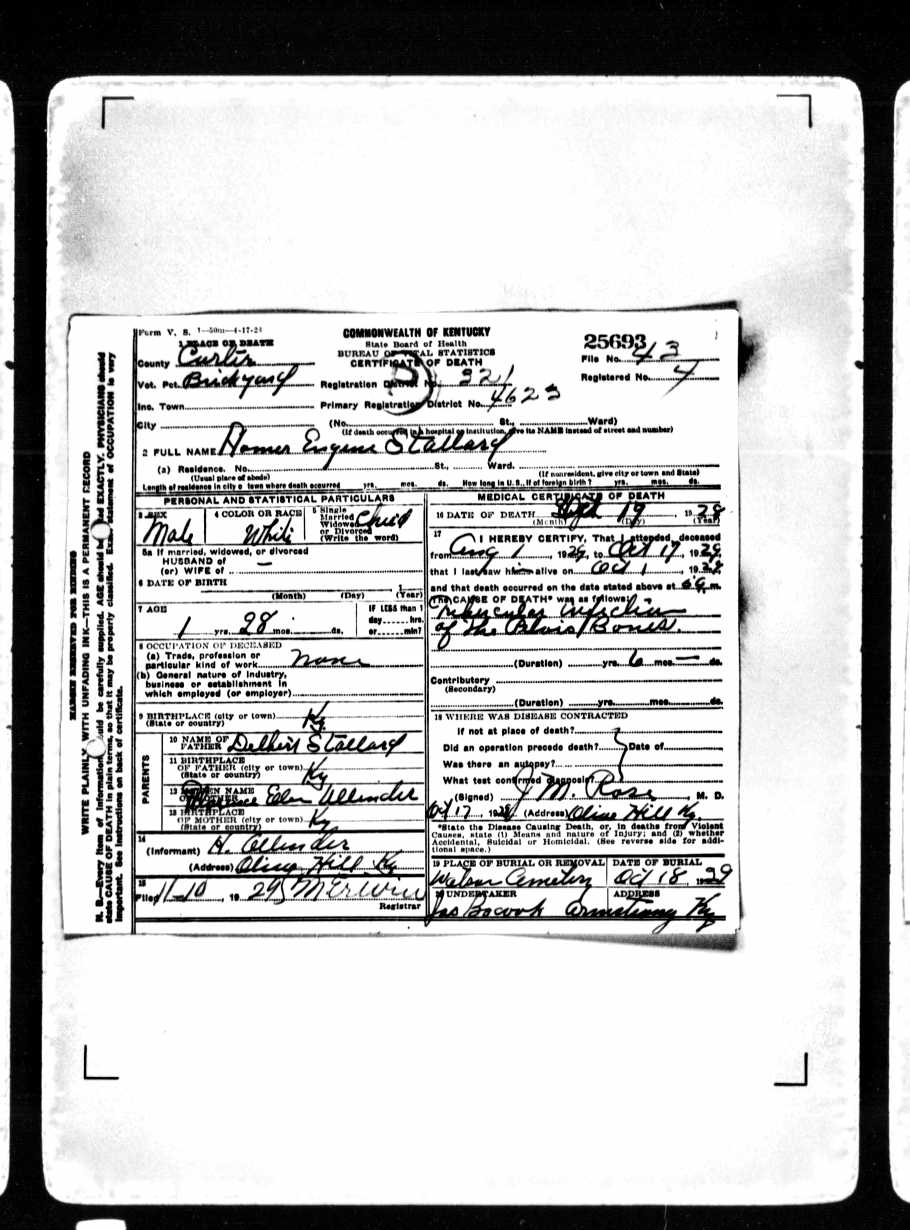 Form V. S. 1—50m—4-17-28
COMMONWEALTH OF KENTUCKY
State Board of Health
BUREAU OF VITAL STATISTICS
CERTIFICATE OF DEATH
25693
File No. 43
Registered No. 4
1 PLACE OF DEATH
County Carter
Vot. Pct. Brickyard
Registration District No. 321
Inc. Town
Primary Registration District No. 4623
City (No. St., Ward)
(If death occurred in a hospital or institution, give its NAME instead of street and number)
2 FULL NAME Homer Eugene Stallard
(a) Residence. No. St., Ward.
(Usual place of abode) (If nonresident, give city or town and State)
Length of residence in city or town where death occurred yrs. mos. ds. How long in U. S., if of foreign birth? yrs. mos. ds.
PERSONAL AND STATISTICAL PARTICULARS
3 SEX Male
4 COLOR OR RACE White
5 Single Married Widowed or Divorced (Write the word) Child
5a If married, widowed, or divorced
HUSBAND of
(or) WIFE of —
6 DATE OF BIRTH
(Month) (Day) (Year)
7 AGE
1 yrs. 28 mos. ds.
IF LESS than 1
day hrs.
or min?
8 OCCUPATION OF DECEASED
(a) Trade, profession or
particular kind of work none
(b) General nature of industry,
business or establishment in
which employed (or employer)
9 BIRTHPLACE (city or town)
(State or country) Ky
PARENTS
10 NAME OF FATHER Delbert Stallard
11 BIRTHPLACE
OF FATHER (city or town)
(State or country) Ky
12 MAIDEN NAME
OF MOTHER Allender
13 BIRTHPLACE
OF MOTHER (city or town)
(State or country) Ky
14
(Informant) H. Allender
(Address) Olive Hill Ky
15
Filed 11-10, 1929
Registrar
MEDICAL CERTIFICATE OF DEATH
16 DATE OF DEATH 19, 1929
(Month) (Day) (Year)
17 I HEREBY CERTIFY, That I attended deceased
from Aug 1, 1929, to Oct 17, 1929,
that I last saw him alive on Oct 1, 1929,
and that death occurred on the date stated above at 6 a m.
The CAUSE OF DEATH* was as follows:
Tubucular infection
of the Pelvis Bones.
(Duration) yrs. 6 mos. — ds.
Contributory
(Secondary)
(Duration) yrs. mos. ds.
18 WHERE WAS DISEASE CONTRACTED
If not at place of death?
Did an operation precede death? Date of
Was there an autopsy?
What test confirmed diagnosis?
(Signed) J M. Rose, M. D.
Oct 17, 1929 (Address) Olive Hill Ky.
*State the Disease Causing Death, or, in deaths from Violent
Causes, state (1) Means and nature of Injury; and (2) whether
Accidental, Suicidal or Homicidal. (See reverse side for addi-
tional space.)
19 PLACE OF BURIAL OR REMOVAL
Cemetery
DATE OF BURIAL
Oct 18, 1929
20 UNDERTAKER
Jas Bocook
ADDRESS
Armstrong Ky
MARGIN RESERVED FOR BINDING
WRITE PLAINLY, WITH UNFADING INK—THIS IS A PERMANENT RECORD
N. B.—Every item of information should be carefully supplied. AGE should be stated EXACTLY. PHYSICIANS should
state CAUSE OF DEATH in plain terms, so that it may be properly classified. Exact statement of OCCUPATION is very
important. See instructions on back of certificate.